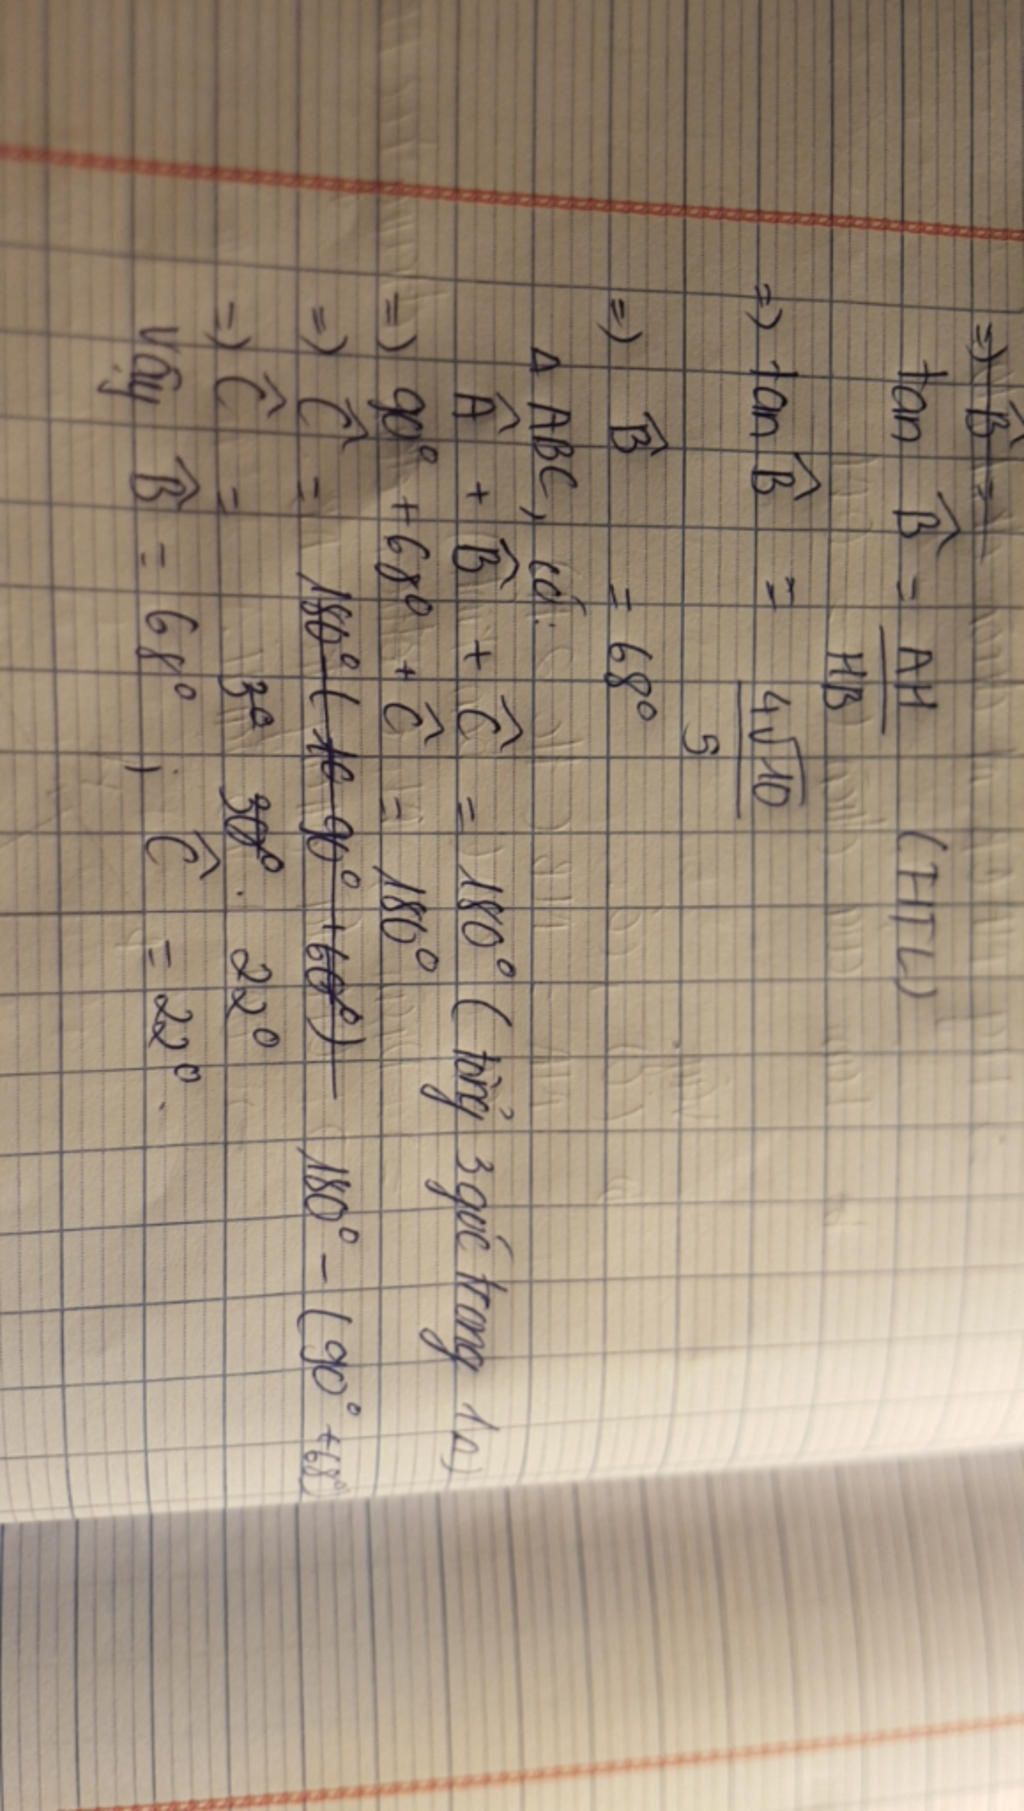 =) B̂ =
tan B̂ = AH/HB (THTL)
=) tan B̂ = 4√10/5
=) B̂ = 68°
Δ ABC, có:
Â + B̂ + Ĉ = 180° (tổng 3 góc trong 1Δ)
=) 90° + 68° + Ĉ = 180°
=) Ĉ = 180° - (90° + 60°) 180° - (90° + 68°)
=) Ĉ = 30°. 22°
Vậy B̂ = 68° ; Ĉ = 22°.